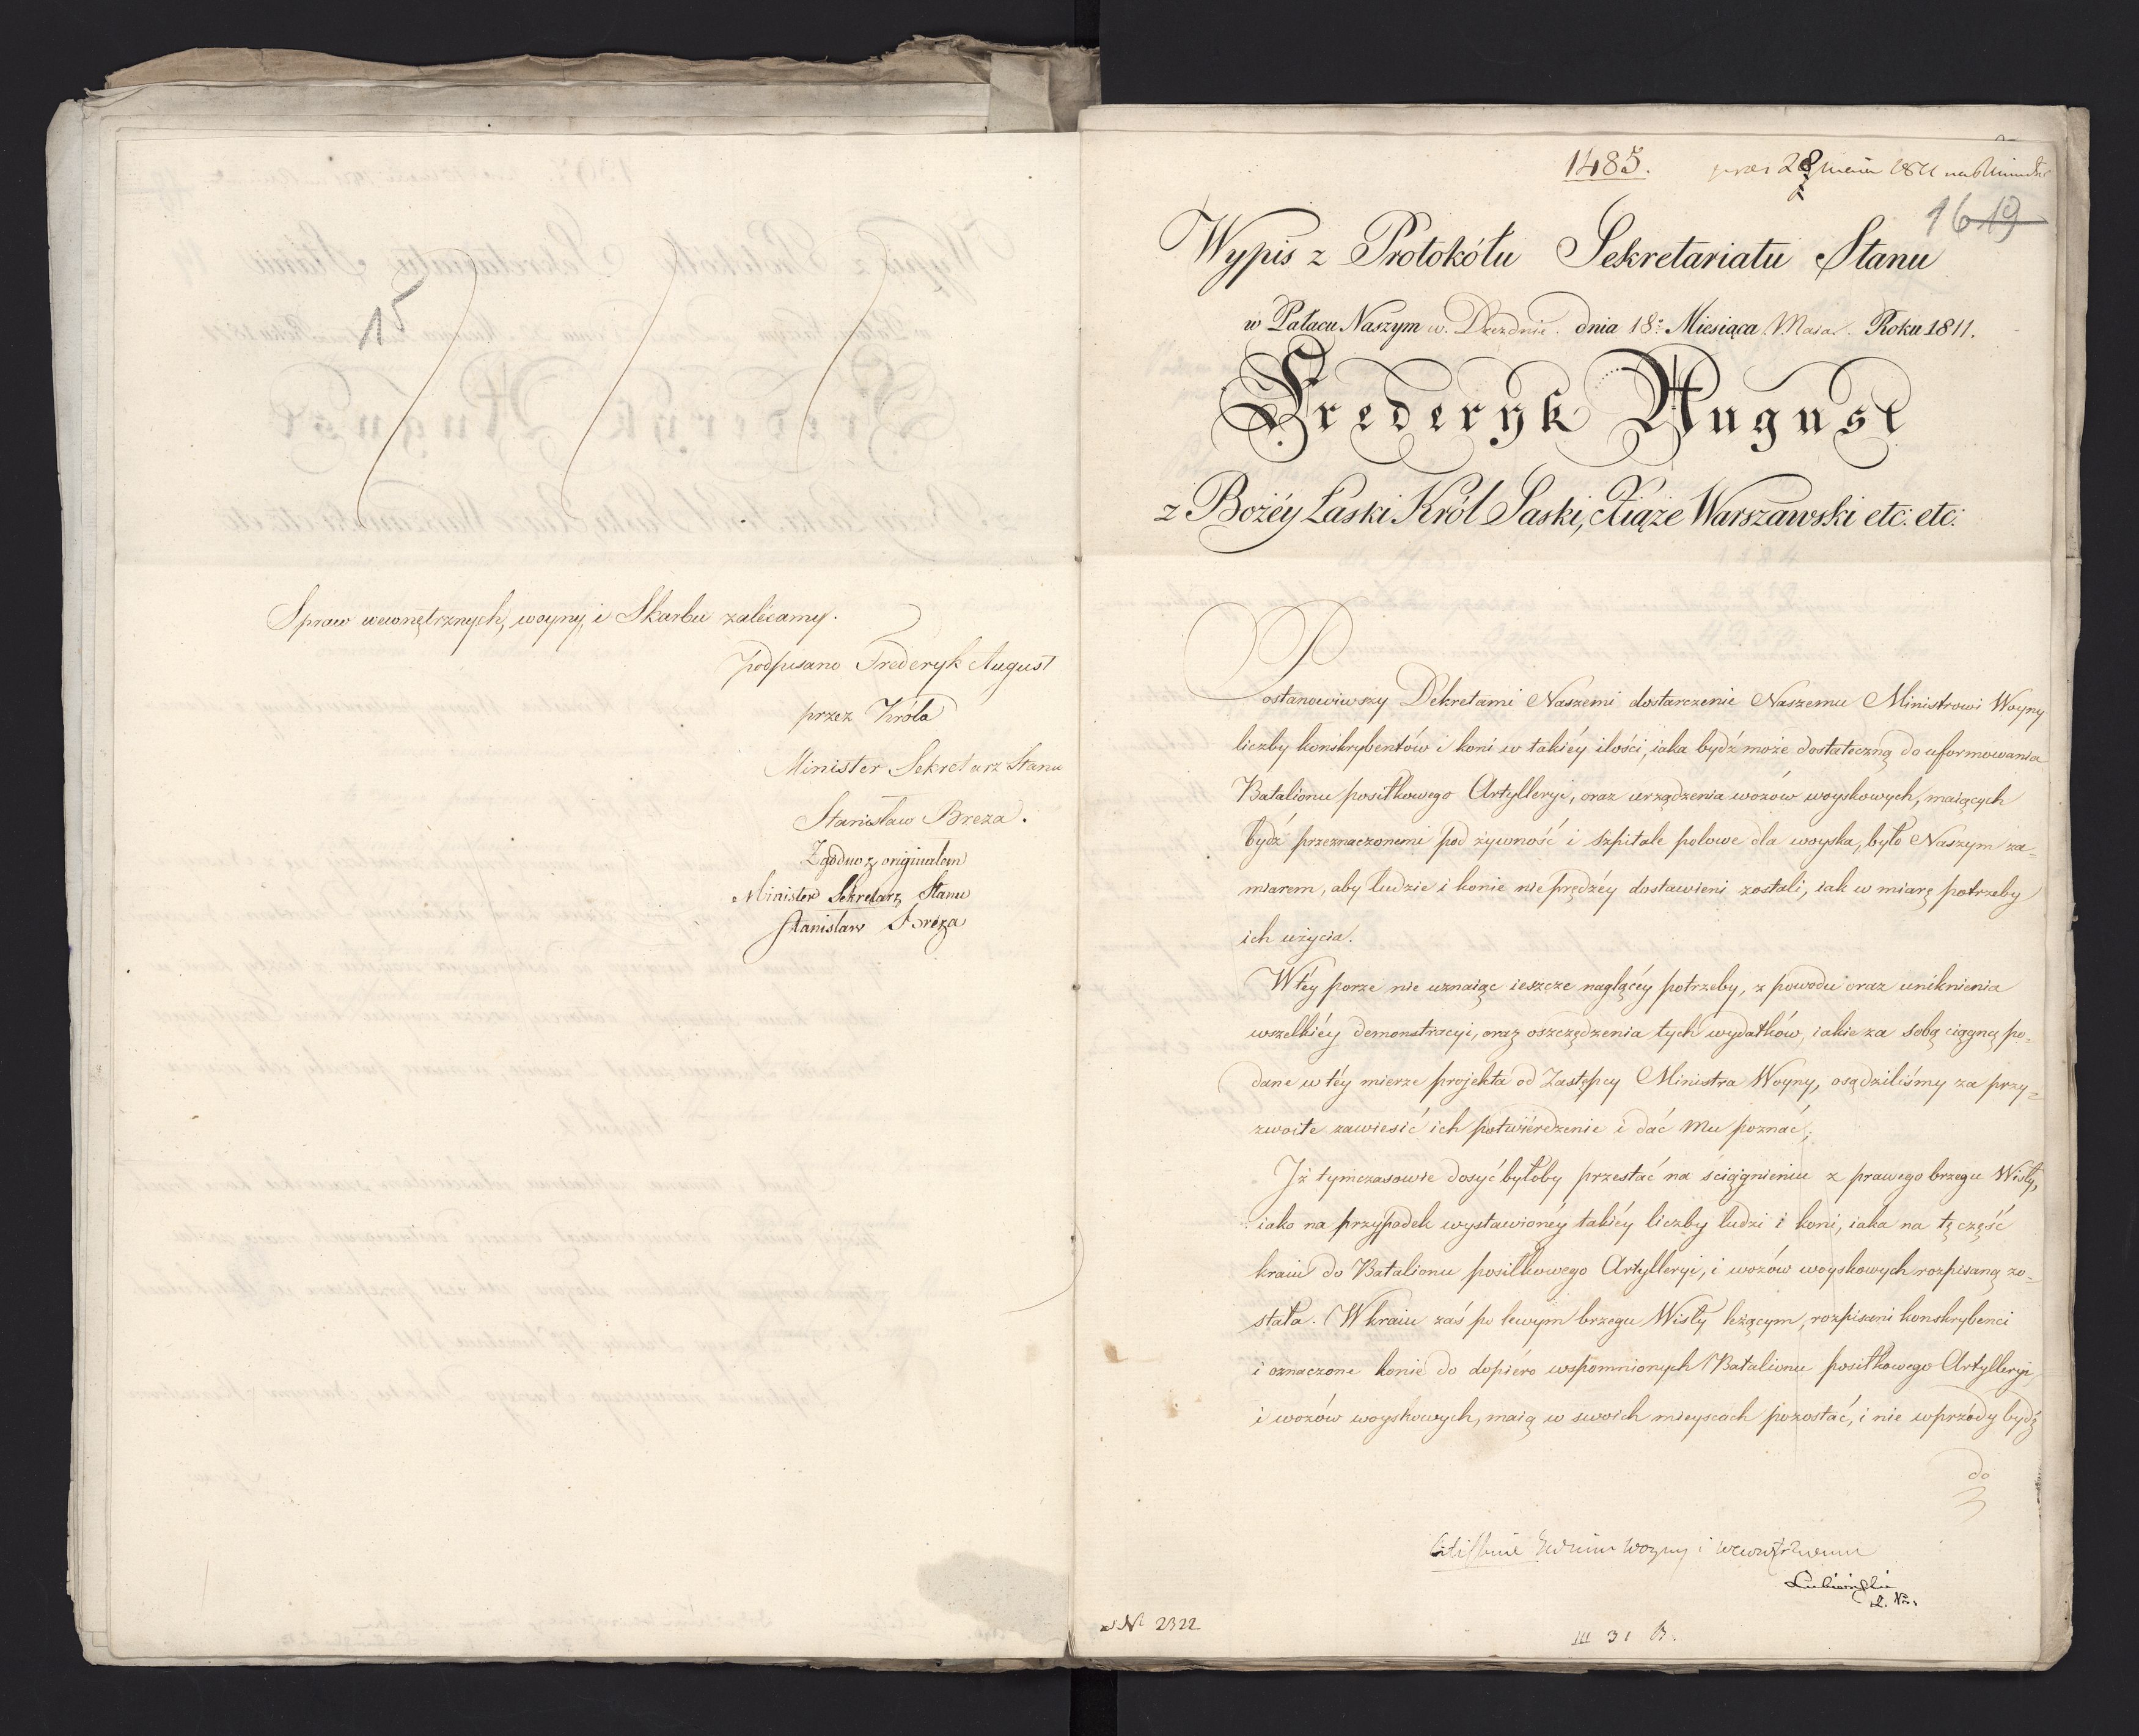 15
Spraw wewnętrznych, woyny, i Skarbu zalécamy.
podpisano Frederyk August
przez Króla
Minister Sekretarz Stanu
Stanisław Breza.
Zgodno z originałem
Minister Sekretarz Stanu
Stanisław Breza
1485.
28 1811
16 19
Wypis z Protokółu Sekretariatu Stanu
w Pałacu Naszym w. Dreznie. dnia 18. Miesiąca Maia. Roku 1811.
Frederyk August
z Bożéy Łaski Król Saski, Xiąże Warszawski etc: etc:
Postanowiwszy Dekretami Naszemi dostarczenie Naszemu Ministrowi Woyny
liczby konskrybentów i koni w takiéy ilości, iaka bydź może dostateczną do uformowania
Batalionu posiłkowego Artylleryi, oraz urządzenia wozów woyskowych, maiących
bydź przeznaczonemi pod żywność i szpitale polowe dla woyska, było Naszym za=
miarem, aby ludzie i konie nie prędzéy dostawieni zostali, iak w miarę potrzeby
ich użycia.
W téy porze nie uznaiąc ieszcze naglącéy potrzeby, z powodu oraz uniknienia
wszelkiéy demonstracyi, oraz oszczędzenia tych wydatków, iakie za sobą ciągną po=
dane w téy mierze projekta od Zastępcy Ministra Woyny, osądziliśmy za przy=
zwoite zawiesić ich potwiérdzenie i dać Mu poznać;
Iż tymczasowie dosyć byłoby przestać na ściągnieniu z prawego brzegu Wisły,
iako na przypadek wystawionéy takiéy liczby ludzi i koni, iaka na tę część
kraiu do Batalionu posiłkowego Artylleryi, i wozów woyskowych rozpisaną zo=
stała. W kraiu zaś po lewym brzegu Wisły leżącym, rozpisani konskrybenci
i oznaczone konie do dopiéro wspomnionych Batalionu posiłkowego Artylleryi
i wozów woyskowych, maią w swoich mieyscach pozostać, i nie wprzódy bydź
do
Woyny i
Lubieński
N 2322
III 31 B.